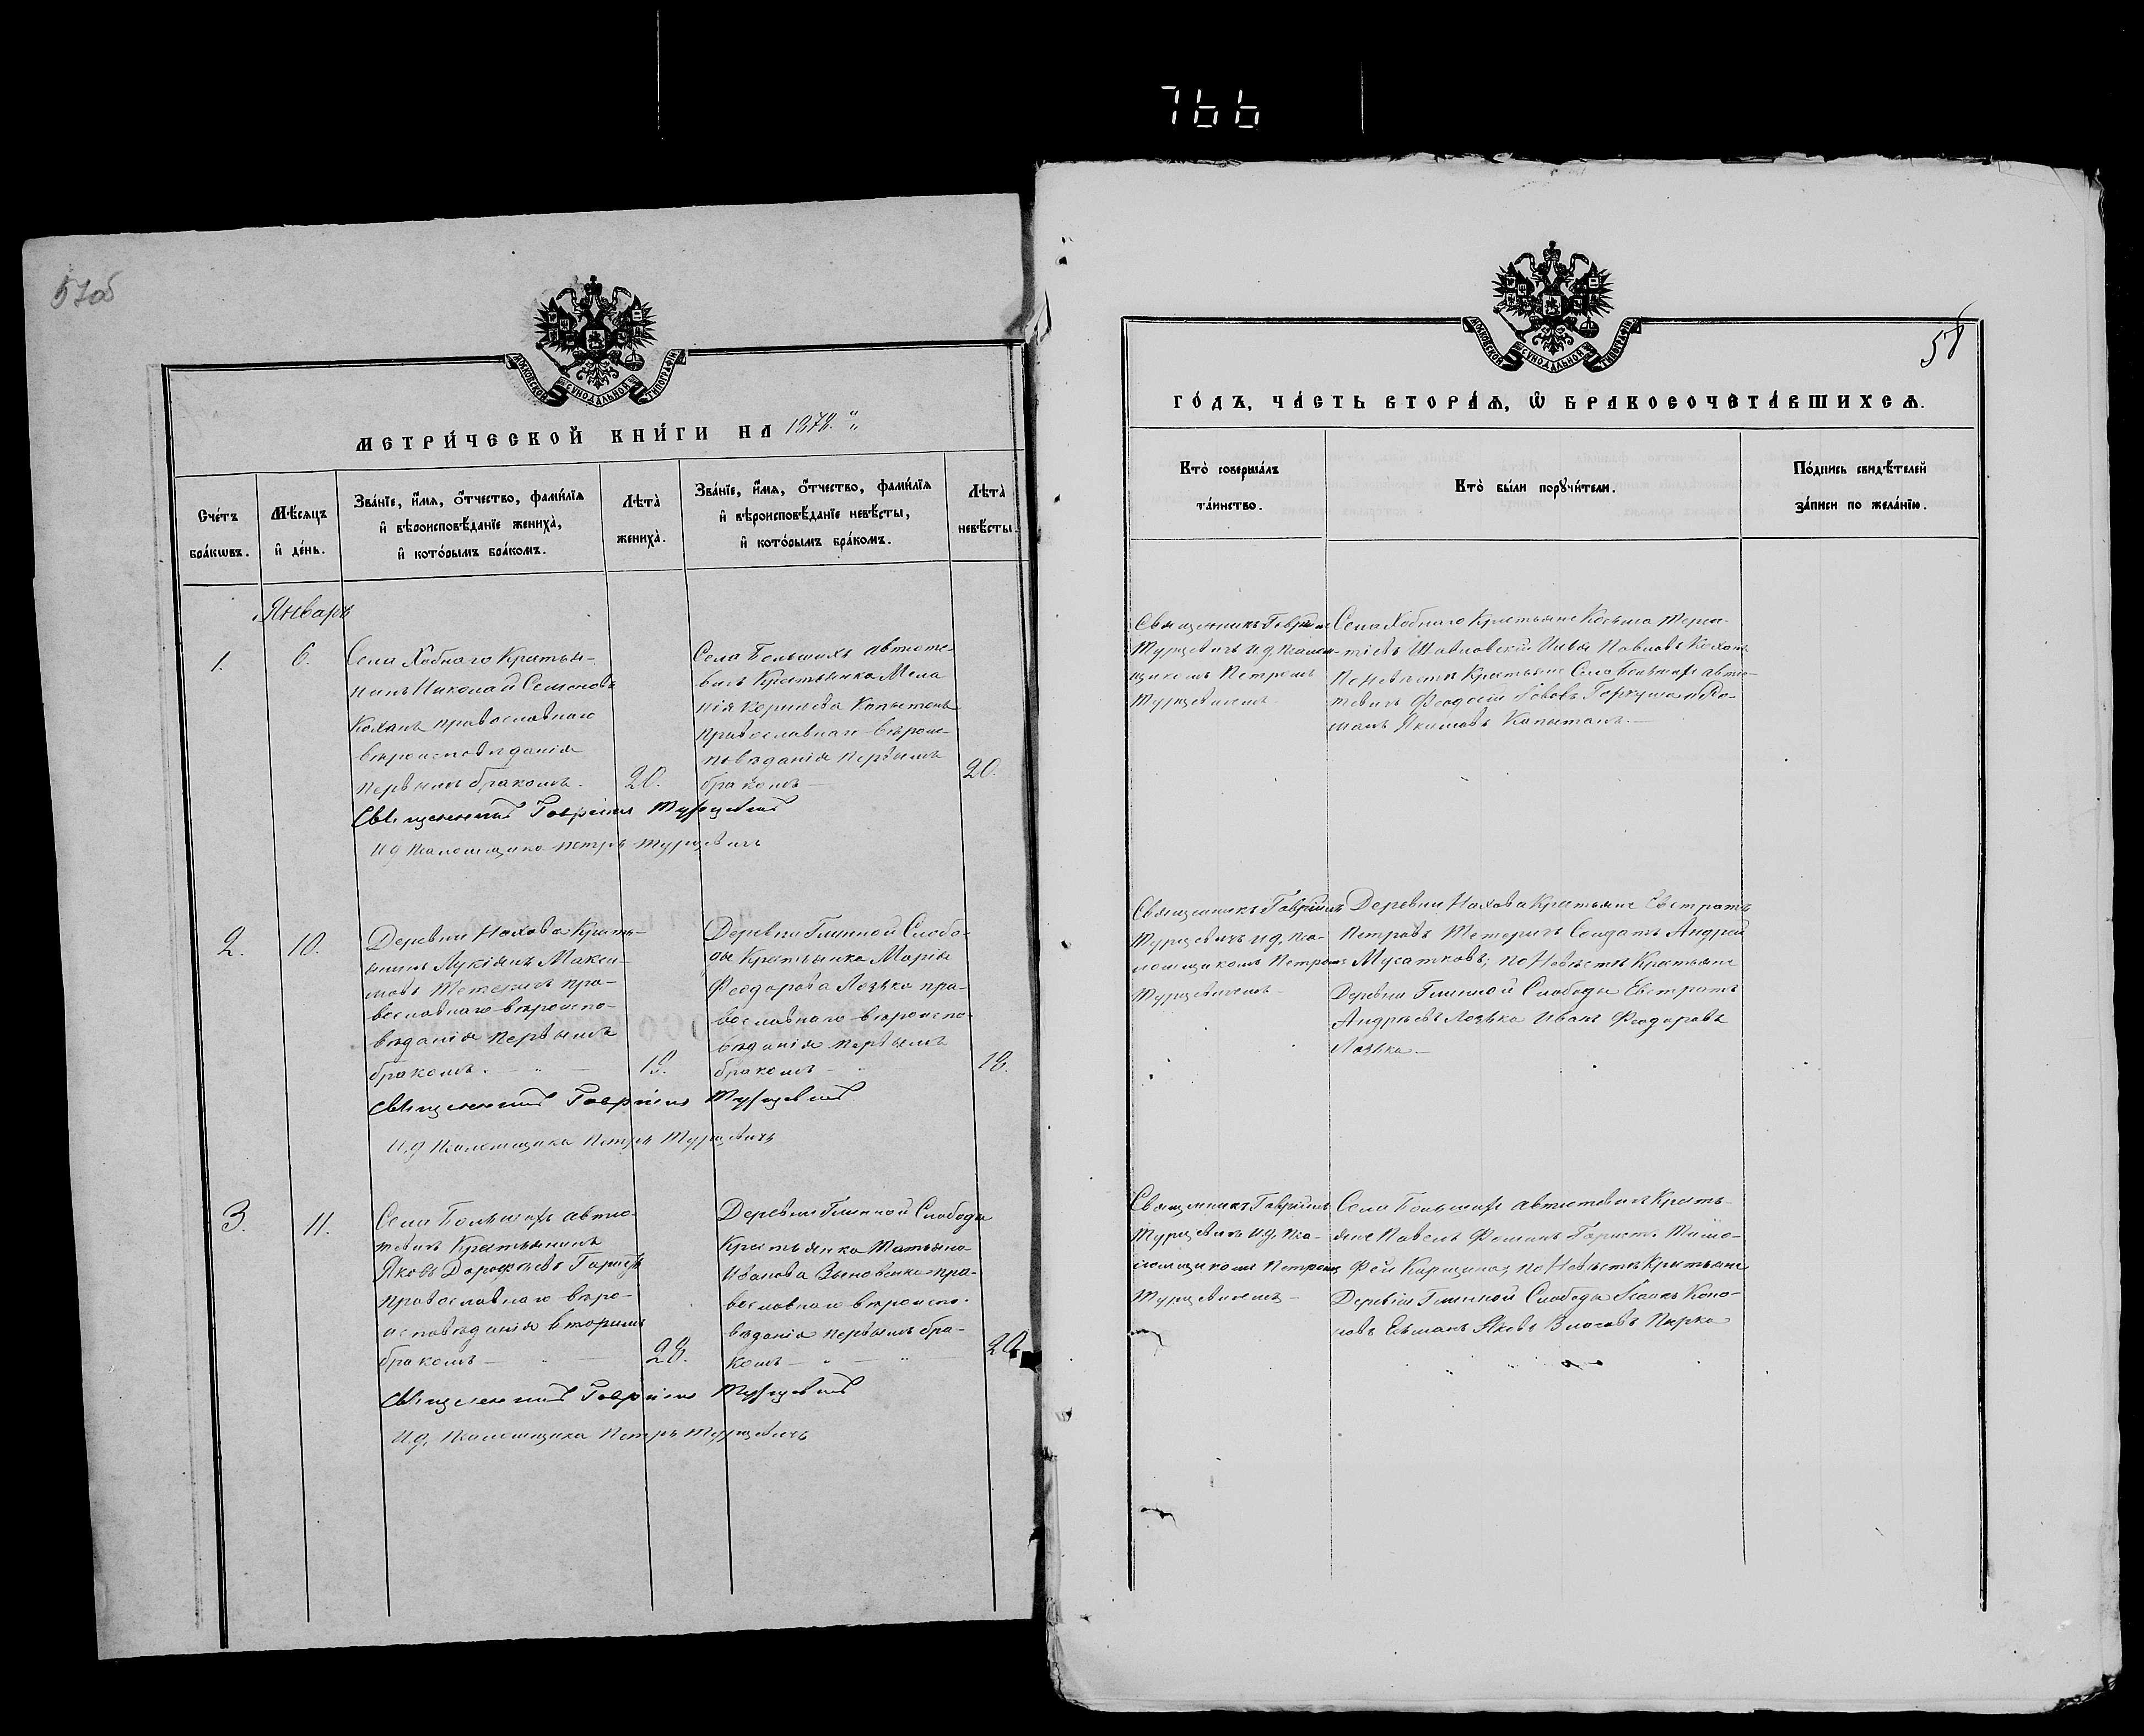 766
57об
МОСКОВСКОЙ СѴНОДАЛЬНОЙ ТИПОГРАФІИ
МЕТРИ́ЧЕСКОЙ КНИ́ГИ НА 1878.
Сче́тъ бра́кѡвъ.
Мѣ́сяцъ и҆ де́нь.
Зва́нїе, и҆́мя, ѻ҆́тчество, фами́лїя
и҆ вѣроисповѣ́данїе жениха̀,
и҆ кото́рымъ бра́комъ.
Лѣта̀ жениха̀.
Зва́нїе, и҆́мя, ѻ҆́тчество, фами́лїя
и҆ вѣроисповѣ́данїе невѣ́сты,
и҆ кото́рымъ бра́комъ.
Лѣта̀ невѣ́сты.
Январь
1.
6.
Села Хобнаго Кресть-
нинъ Николай Семеновъ
Коханъ православнаго
вѣроисповѣданія
первымъ бракомъ.
20.
Села Большихъ автюте-
вичъ Крестьянка Мела
нія
православнаго вѣроис-
повѣданія первымъ
бракомъ —
20.
Священникъ Гавріилъ Турцевичъ
И д Псаломщика Петръ Турцевичъ
2.
10.
Деревни Нахова Кресть-
янинъ Лукіянъ Макси-
мовъ Тетеричъ пра-
вославнаго вѣроиспо-
вѣданія первымъ
бракомъ. — " —
Деревни Глинной Слобо-
ды Крестьянка Марія
Феодорова Лозько пра-
вославнаго вѣроиспо-
вѣданія первымъ
бракомъ — "
18.
Священникъ Гавріилъ Турцевичъ
И.д Псаломщика Петръ Турцевичъ
3.
11.
Села Большихъ автю-
тевичъ Крестьянинъ
Яковъ Дорофѣевъ
православнаго вѣро-
исповѣданія вторымъ
бракомъ — " —
28.
Деревни Глинной Слободы
Крестьянка Татьяна
Иванова Зыновенко пра-
вославнаго вѣроиспо-
вѣданія первымъ бра-
комъ — " — "
20.
Священникъ Гавріилъ Турцевичъ
И.д. Псаломщика Петръ Турцевичъ
58
МОСКОВСКОЙ СѴНОДАЛЬНОЙ ТИПОГРАФІИ
ГО́ДЪ, ЧА́СТЬ ВТОРА́Я, Ѡ҆ БРАКОСОЧЕТА́ВШИХСЯ.
Кто̀ соверша́лъ
та́инство.
Кто̀ бы́ли порꙋчи́тели.
По́дпись свидѣ́телей
за́писи по жела́нїю.
Священникъ Гавріилъ
Турцевичъ и д. Псалом-
щикомъ Петромъ
Турцевичемъ —
Села Хобнаго Крестьяне Косьма Терен-
тіевъ Павловъ Коханъ
По Невѣстѣ Крестьяне Села Большихъ автю-
тевичъ Феодосій Гаркуша и Ро-
манъ Якимовъ —
Священникъ Гавріилъ
Турцевичъ и д. Пса-
ломщикомъ Петромъ
Турцевичемъ —
Деревни Нахова Крестьяне Евстратъ
Петровъ Тетеричъ Солдатъ Андрей
Мусатковъ; по Невѣстѣ Крестьяне
Деревни Глинной Слободы Евстратъ
Андреевъ Лозько Иванъ Феодоровъ
Лозько —
Священникъ Гавріилъ
Турцевичъ и.д. Пса-
ломщикомъ Петромъ
Турцевичемъ —
Села Большихъ автютевичъ Кресть-
яне Павелъ Фоминъ Тимо-
фей по Невѣстѣ Крестьяне
Деревни Глинной Слободы Коно-
новъ Яковъ